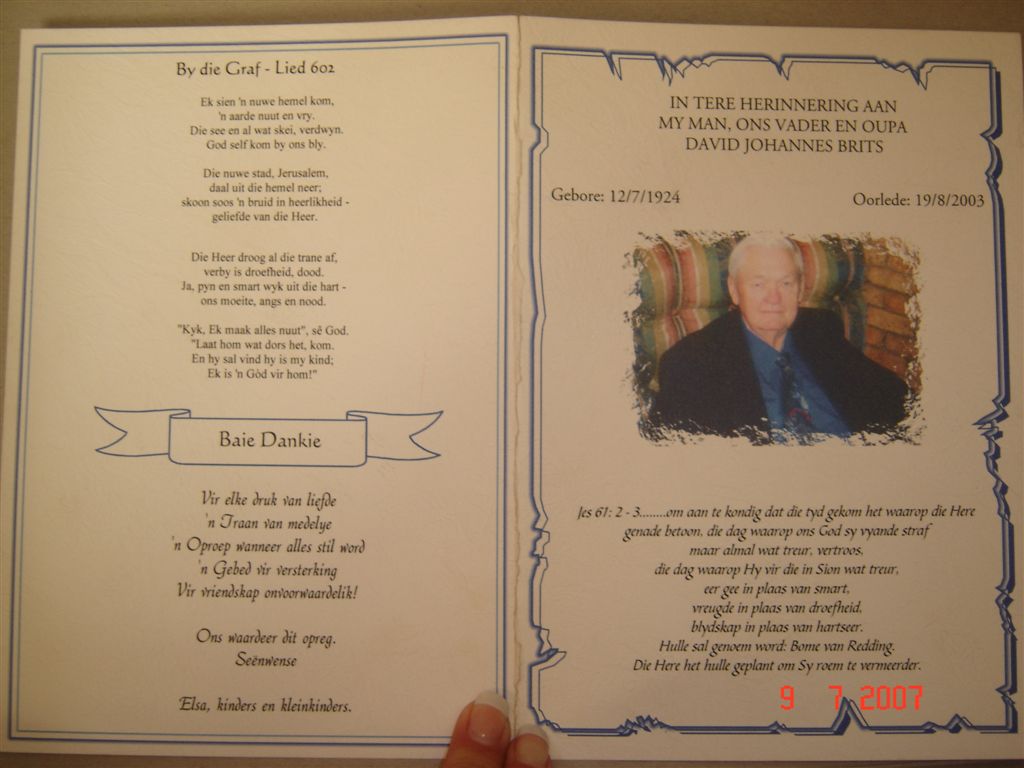 By die Graf - Lied 602
Ek sien 'n nuwe hemel kom,
'n aarde nuut en vry.
Die see en al wat skei, verdwyn.
God self kom by ons bly.
Die nuwe stad, Jerusalem,
daal uit die hemel neer;
skoon soos 'n bruid in heerlikheid -
geliefde van die Heer.
Die Heer droog al die trane af,
verby is droefheid, dood.
Ja, pyn en smart wyk uit die hart -
ons moeite, angs en nood.
"Kyk, Ek maak alles nuut", sê God.
"Laat hom wat dors het, kom.
En hy sal vind hy is my kind;
Ek is 'n Gòd vir hom!"
Baie Dankie
Vir elke druk van liefde
'n Traan van medelye
'n Oproep wanneer alles stil word
'n Gebed vir versterking
Vir vriendskap onvoorwaardelik!
Ons waardeer dit opreg.
Seënwense
Elsa, kinders en kleinkinders.
IN TERE HERINNERING AAN
MY MAN, ONS VADER EN OUPA
DAVID JOHANNES BRITS
Gebore: 12/7/1924 Oorlede: 19/8/2003
Jes 61: 2 - 3........om aan te kondig dat die tyd gekom het waarop die Here
genade betoon, die dag waarop ons God sy vyande straf
maar almal wat treur, vertroos,
die dag waarop Hy vir die in Sion wat treur,
eer gee in plaas van smart,
vreugde in plaas van droefheid,
blydskap in plaas van hartseer.
Hulle sal genoem word: Bome van Redding.
Die Here het hulle geplant om Sy roem te vermeerder.
9 7 2007